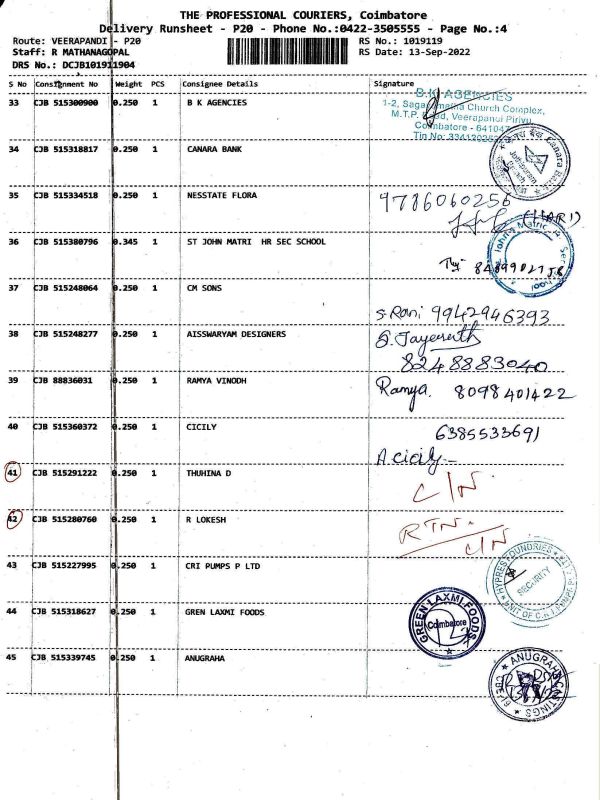 THE PROFESSIONAL COURIERS, Coimbatore
Delivery Runsheet - P20 - Phone No.:0422-3505555 - Page No.:4
Route: VEERAPANDI - P20
Staff: R MATHANAGOPAL
DRS No.: DCJB101911904
RS No.: 1019119
RS Date: 13-Sep-2022
S No Consignment No Weight PCS Consignee Details Signature
33 CJB 515300900 0.250 1 B K AGENCIES
B.K AGENCIES
Church Complex,
M.T.P. Veerapandi Pirivu,
Coimbatore - 64104
Tin No:
34 CJB 515318817 0.250 1 CANARA BANK
Canara Bank
35 CJB 515334518 0.250 1 NESSTATE FLORA
9786060256
(HARI)
36 CJB 515380796 0.345 1 ST JOHN MATRI HR SEC SCHOOL
John's Matric
Sec School
37 CJB 515248064 0.250 1 CM SONS
S. Rani 9942946393
38 CJB 515248277 0.250 1 AISSWARYAM DESIGNERS
8248883040
39 CJB 88836031 0.250 1 RAMYA VINODH
Ramya. 8098401422
40 CJB 515360372 0.250 1 CICILY
6385533691
A. Cicily
41 CJB 515291222 0.250 1 THUHINA D
C/N.
42 CJB 515280760 0.250 1 R LOKESH
RTN.
C/N
43 CJB 515227995 0.250 1 CRI PUMPS P LTD
SECURITY
44 CJB 515318627 0.250 1 GREN LAXMI FOODS
GREEN LAXMI FOODS
Coimbatore
45 CJB 515339745 0.250 1 ANUGRAHA
ANUGRAHA CASTINGS